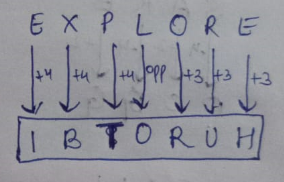 E X P L O R E
+4 +4 +4 opp +3 +3 +3
I B T O R U H